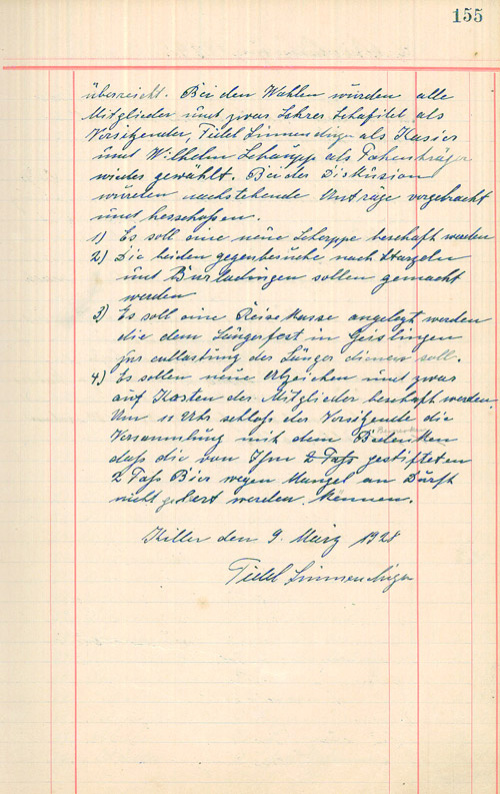 155
überreicht. Bei den Wahlen wurden alle
Mitglieder und zwar Lehrer Schäfile als
Vorsitzender, Fidel Simmendinger als Kasier
und Wilhelm Schaupp als Fahenträger
wieder gewählt. Bei der Diskusion
wurden nachstehende Anträge vorgebracht
und besschossen.
1) Es soll eine neue Scherppe beschaft werden
2) Die beiden gegenbesuche nach Starzeln
und Burladingen sollen gemacht
werden
3) Es soll eine Reisekasse angelegt werden
die dem Sängerfest in Geislingen
zur entlastung der Sänger dienen soll.
4) Es sollen neue Abzeichen und zwar
auf Kosten der Mitglieder beschaft werden.
Um 11 Uhr schloß der Vorsitzende die
Versammlung mit dem Bedenken
daß die von Ihm 2 Faß gestifteten
2 Faß Bier wegen Mangel an Durst
nicht geleert werden können.
Killer den 9. März 1928
Fidel Simmendinger